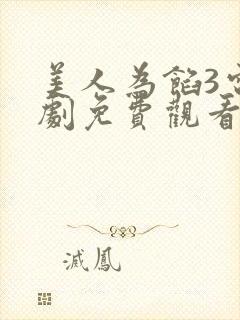 美人為餡3電
劇免費觀看
滅鳳